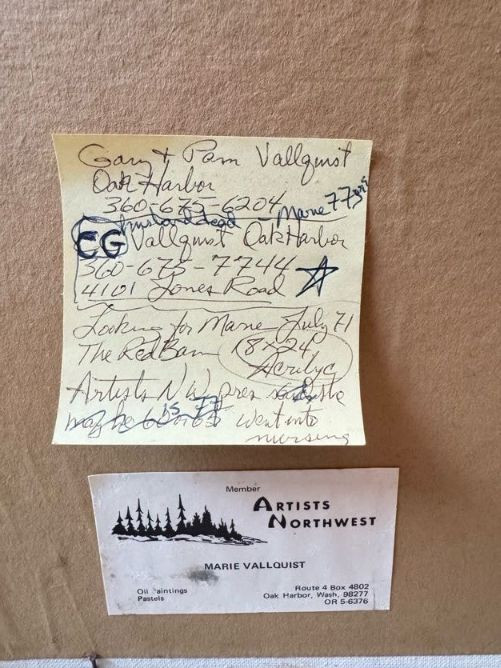 Gary + Pam Vallquist
Oak Harbor
360-675-6204
husband dead - Marie 77 yrs
EG Vallquist Oak Harbor
360-675-7744
4101 Jones Road
Looking for Marie July 71
The Red Barn 18x24
Acrilyc
Artists NW pres said she
maybe is 77 went into
nursing
Member
ARTISTS
NORTHWEST
MARIE VALLQUIST
Oil Paintings
Pastels
Route 4 Box 4802
Oak Harbor, Wash. 98277
OR 5-6376